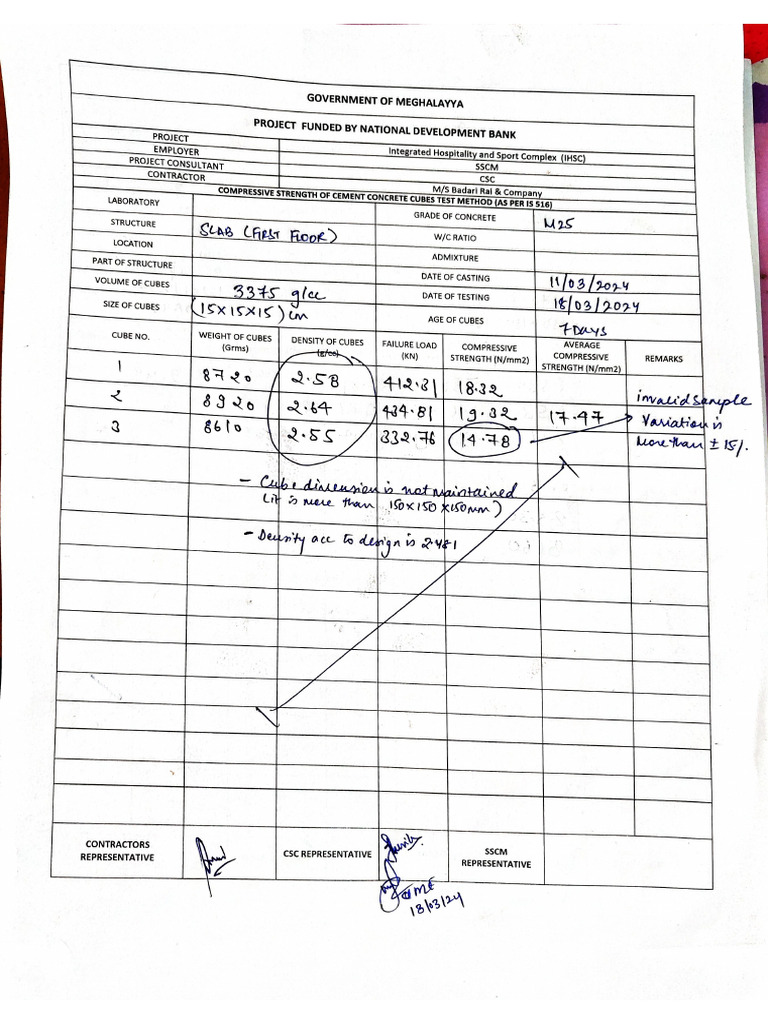 GOVERNMENT OF MEGHALAYYA
PROJECT FUNDED BY NATIONAL DEVELOPMENT BANK
PROJECT Integrated Hospitality and Sport Complex (IHSC)
EMPLOYER SSCM
PROJECT CONSULTANT CSC
CONTRACTOR M/S Badari Rai & Company
COMPRESSIVE STRENGTH OF CEMENT CONCRETE CUBES TEST METHOD (AS PER IS 516)
LABORATORY GRADE OF CONCRETE M25
STRUCTURE SLAB (FIRST FLOOR) W/C RATIO
LOCATION ADMIXTURE
PART OF STRUCTURE DATE OF CASTING 11/03/2024
VOLUME OF CUBES 3375 g/cc DATE OF TESTING 18/03/2024
SIZE OF CUBES (15X15X15) cm AGE OF CUBES 7 DAYS
CUBE NO. WEIGHT OF CUBES (Grms) DENSITY OF CUBES (g/cc) FAILURE LOAD (KN) COMPRESSIVE STRENGTH (N/mm2) AVERAGE COMPRESSIVE STRENGTH (N/mm2) REMARKS
1 8720 2.58 412.31 18.32
2 8920 2.64 434.81 19.32 17.47
3 8610 2.55 332.76 14.78
invalid sample
Variation is
More than ± 15%
- Cube dimension is not maintained
(it is more than 150x150x150mm)
- Density acc to design is 2.481
CONTRACTORS REPRESENTATIVE
CSC REPRESENTATIVE
SSCM REPRESENTATIVE
18/03/24